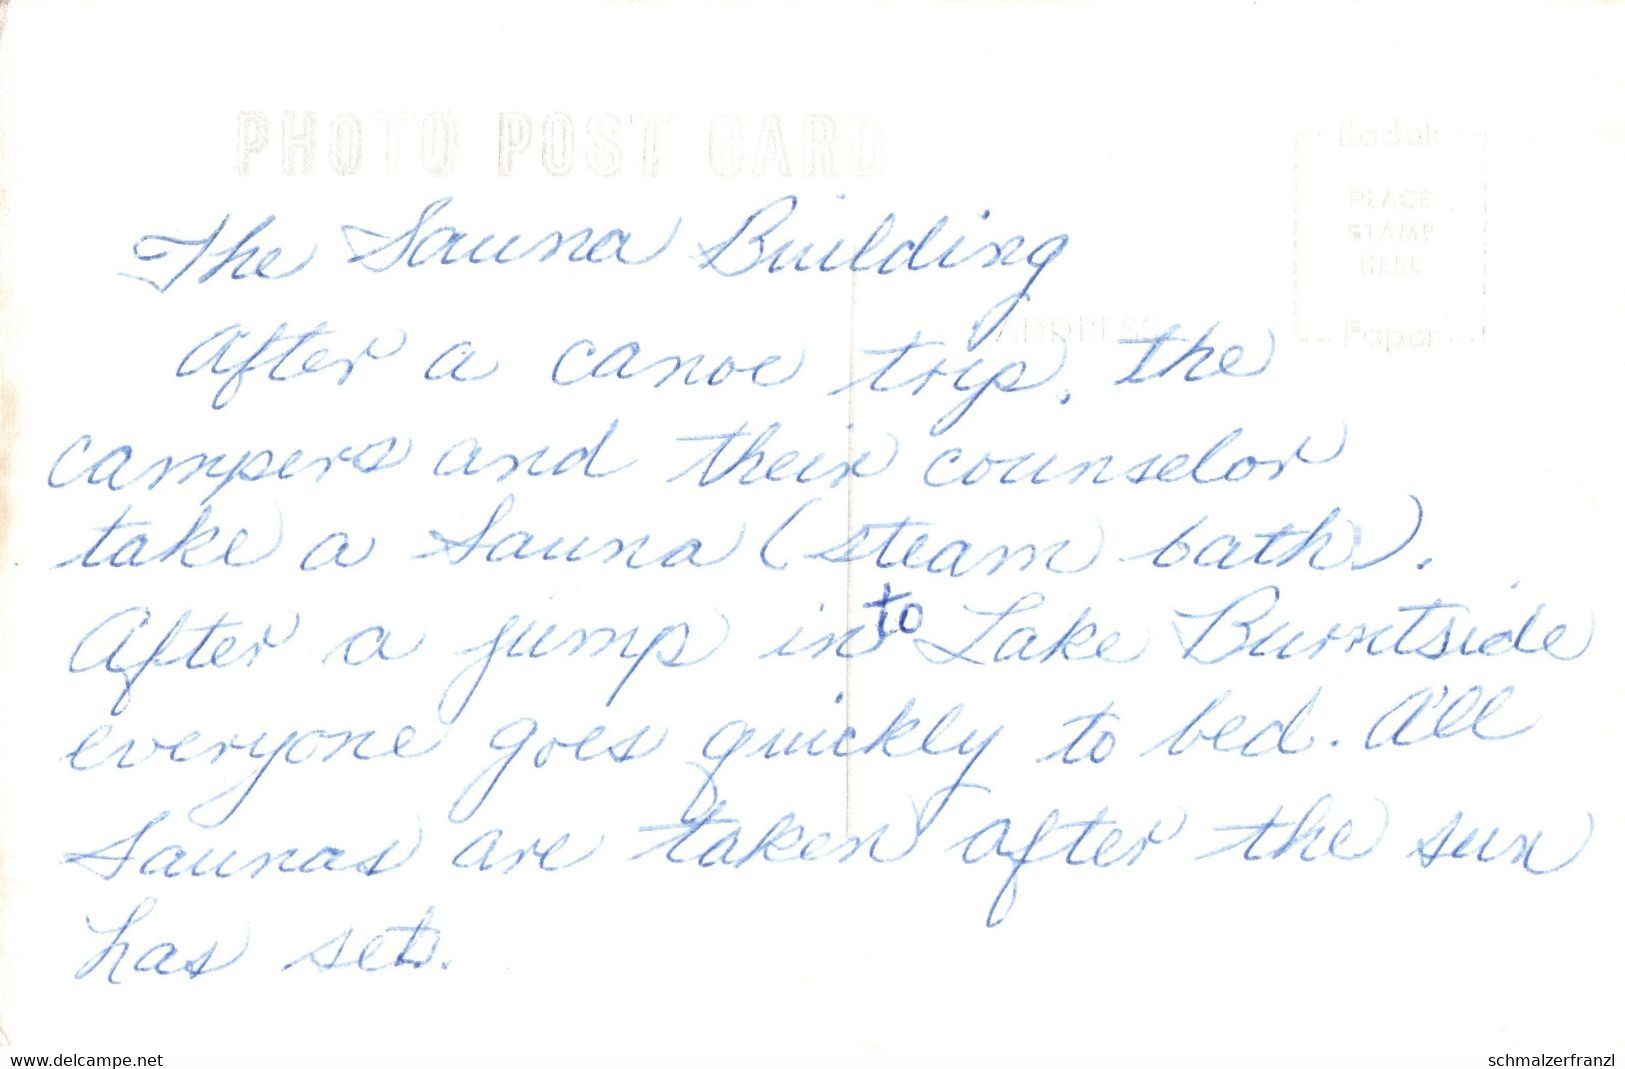 PHOTO POST CARD
Kodak
PLACE
STAMP
HERE
Paper
ADDRESS
The Sauna Building
After a canoe trip, the
campers and their counselor
take a Sauna (steam bath).
After a jump into Lake Burntside
everyone goes quickly to bed. All
Saunas are taken after the sun
has set.
www.delcampe.net
schmalzerfranzl